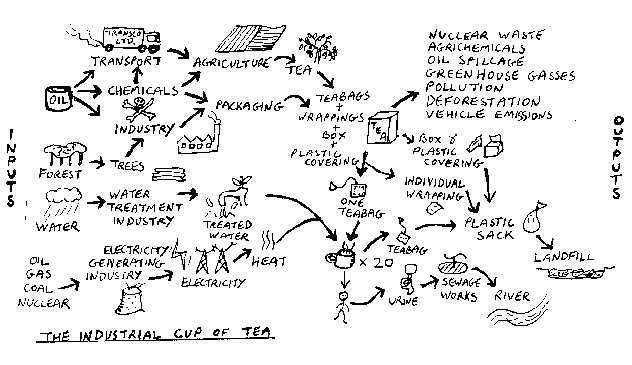 TRANSCO
LTD.
TRANSPORT
AGRICULTURE
TEA
NUCLEAR WASTE
AGRICHEMICALS
OIL SPILLAGE
GREENHOUSE GASSES
POLLUTION
DEFORESTATION
VEHICLE EMISSIONS
OIL
CHEMICALS
INDUSTRY
PACKAGING
TEABAGS
+
WRAPPINGS
+
BOX
+
PLASTIC
COVERING
TEA
BOX &
PLASTIC
COVERING
INPUTS
OUTPUTS
FOREST
TREES
INDIVIDUAL
WRAPPING
ONE
TEABAG
WATER
WATER
TREATMENT
INDUSTRY
TREATED
WATER
PLASTIC
SACK
TEABAG
LANDFILL
OIL
GAS
COAL
NUCLEAR
ELECTRICITY
GENERATING
INDUSTRY
ELECTRICITY
HEAT
x 20
URINE
SEWAGE
WORKS
RIVER
THE INDUSTRIAL CUP OF TEA